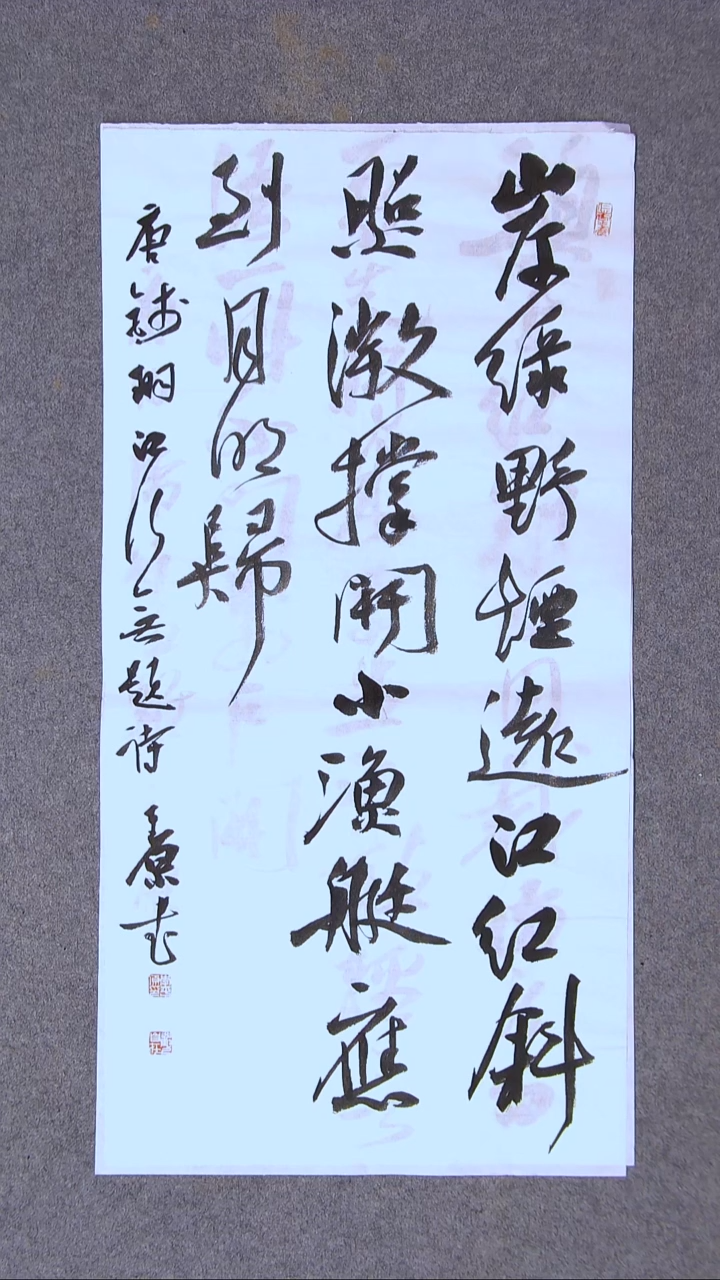 岸綠野煙遠江紅斜
照微撐開小漁艇應
到月明歸
唐錢珝江行無題詩 書